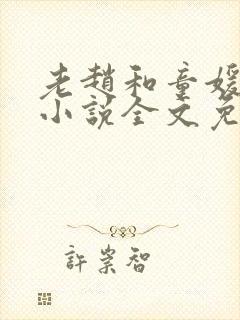 老趙和童媛
小說全文免
許崇智